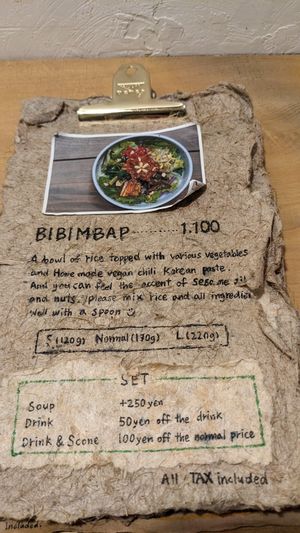 BIBIMBAP..........1.100
A bowl of rice topped with various vegetables
and Home made vegan chili Korean paste.
And you can feel the accent of Sesame oil
and nuts. please mix rice and all ingredients
well with a spoon
S(120g) Normal(170g) L(220g)
SET
Soup +250yen
Drink 50yen off the drink
Drink & Scone 100yen off the normal price
All TAX included
Included.